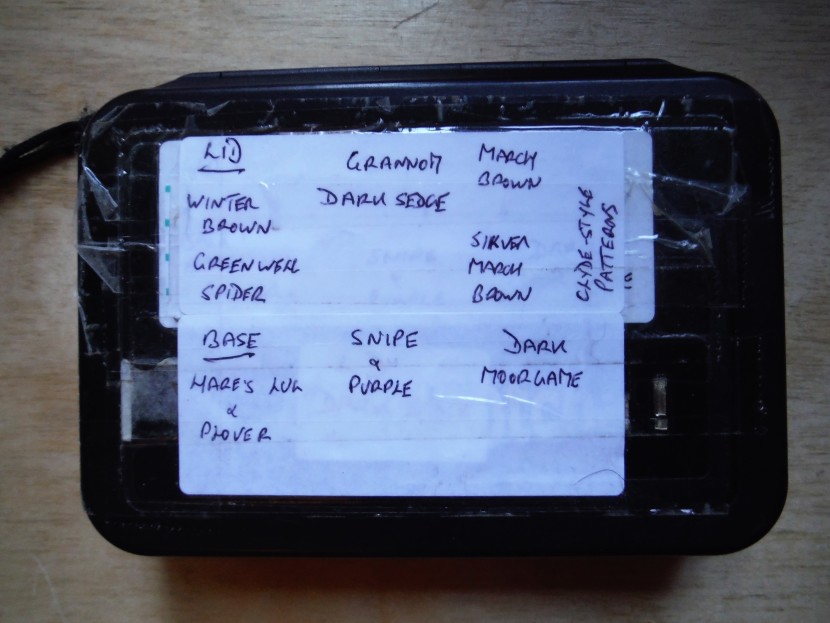 LID
GRANNOM
MARCH
BROWN
WINTER
BROWN
DARK SEDGE
GREENWELL
SPIDER
SILVER
MARCH
BROWN
CLYDE-STYLE
PATTERNS
BASE
HARE'S LUG
&
PLOVER
SNIPE
&
PURPLE
DARK
MOORGAME